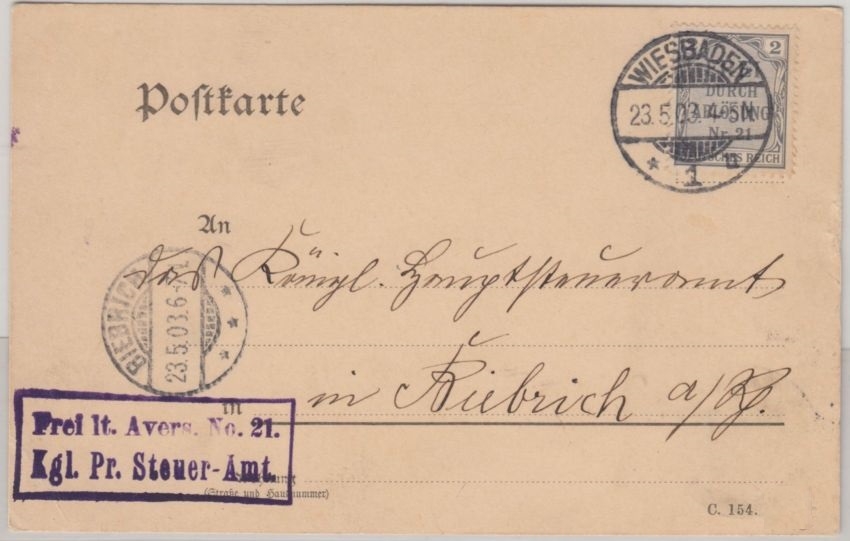 Postkarte
2
DURCH
ABLÖSUNG
Nr. 21
DEUTSCHES REICH
WIESBADEN
23.5.03. 4-5N
* 1 u
An
das Königl. Hauptsteueramt
BIEBRICH
23.5.03.6-7N
in
in Biebrich a/Rh.
Frei lt. Avers. No. 21.
Kgl. Pr. Steuer-Amt.
(Straße und Hausnummer)
C. 154.